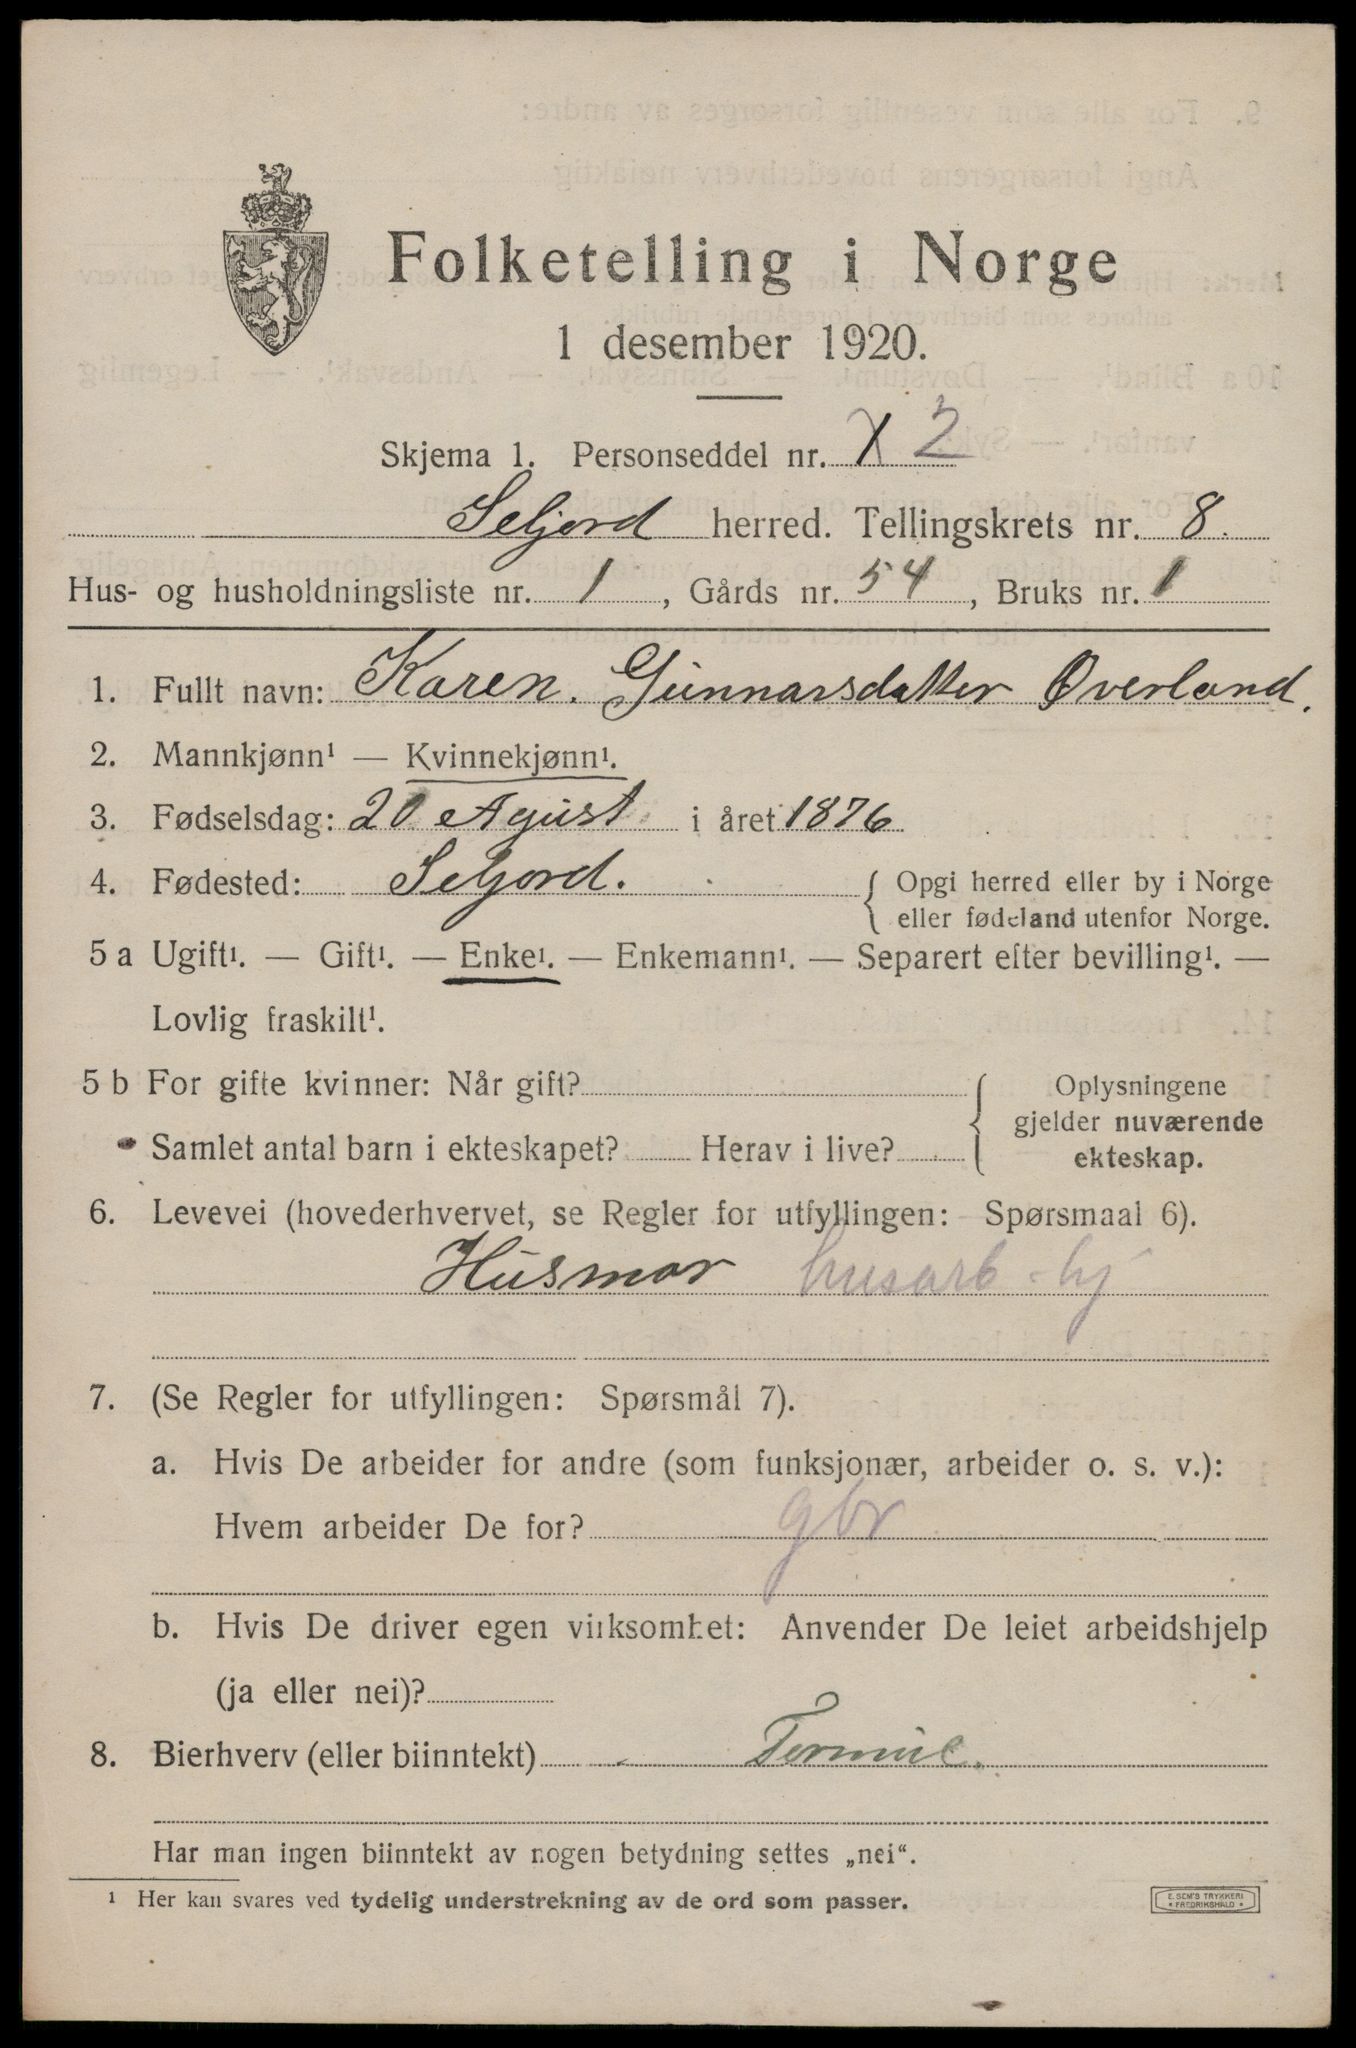 Folketelling i Norge
1 desember 1920.
Skjema 1. Personseddel nr. X 2
Seljord herred. Tellingskrets nr. 8.
Hus- og husholdningsliste nr. 1, Gårds nr. 54, Bruks nr. 1
1. Fullt navn: Karen. Gunnarsdatter Øverland.
2. Mannkjønn¹ — Kvinnekjønn¹.
3. Fødselsdag: 20 Agust i året 1876
4. Fødested: Seljord. { Opgi herred eller by i Norge
eller fødeland utenfor Norge.
5 a Ugift¹. — Gift¹. — Enke¹. — Enkemann¹. — Separert efter bevilling¹. —
Lovlig fraskilt¹.
5 b For gifte kvinner: Når gift? { Oplysningene
gjelder nuværende
Samlet antal barn i ekteskapet? Herav i live? ekteskap.
6. Levevei (hovederhvervet, se Regler for utfyllingen: Spørsmaal 6).
Husmor husarb. hj
7. (Se Regler for utfyllingen: Spørsmål 7).
a. Hvis De arbeider for andre (som funksjonær, arbeider o. s. v.):
Hvem arbeider De for? gbr
b. Hvis De driver egen virksomhet: Anvender De leiet arbeidshjelp
(ja eller nei)?
8. Bierhverv (eller biinntekt)
Har man ingen biinntekt av nogen betydning settes „nei“.
¹ Her kan svares ved tydelig understrekning av de ord som passer.
E. SEM'S TRYKKERI
* FREDRIKSHALD *